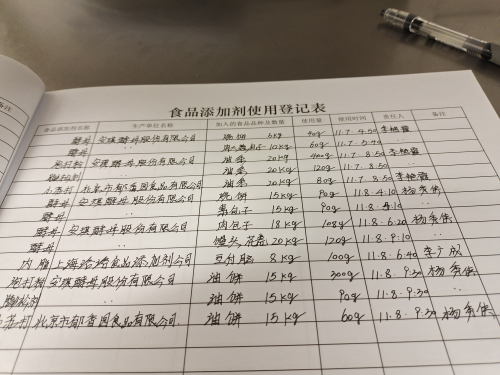 食品添加剂使用登记表
备注
食品添加剂名称 生产单位名称 加入的食品品种及数量 使用量 使用时间 责任人 备注
酵母 安琪酵母股份有限公司 烧饼 6kg 40g 11.7 4:50 李艳霞
酵母 〃 10kg 60g 11.7 5:40
泡打粉 安琪酵母股份有限公司 油条 20kg 400g 11.7 8:50 李艳霞
〃 油条 20kg 120g 11.7 8:50
小苏打 北京市郁香园食品有限公司 油条 20kg 80g 11.7 8:50 李艳霞
酵母 安琪酵母股份有限公司 烧饼 15kg 90g 11.8 4:10
酵母 〃 包子 15kg 90g 11.8
酵母 安琪酵母股份有限公司 肉包子 18kg 108g 11.8 6:20
酵母 〃 馒头 花卷 20kg 120g 11.8 9:10
内酯 食品添加剂公司 豆付脑 8kg 100g 11.8 6:40 李广成
泡打粉 安琪酵母股份有限公司 油饼 15kg 300g 11.8 9:30
〃 油饼 15kg 90g 11.8 9:30 〃
小苏打 北京市郁香园食品有限公司 油饼 15kg 60g 11.8 9:30